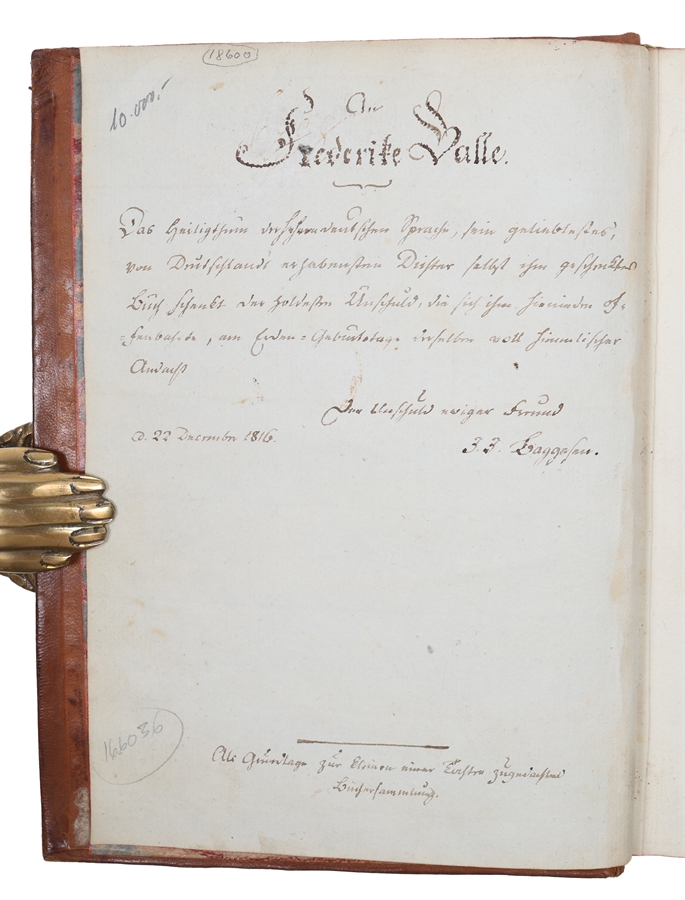 18600
10.000.-
An
Frederike Valle.
Das Heiligthum der deutschen Sprache, sein geliebtestes,
von Deutschlands erhabenstem Dichter selbst ihm geschenktes
Buch schenkt der holdesten Unschuld, die sich ihm hienieden of-
=fenbahrte, am Erden=Geburtstage derselben voll himmlischer
Andacht
Der Unschuld ewiger Freund
d. 22 December 1816.
J. J. Baggesen.
166036
Als Grundlage zur kleinen einer Tochter zugedachten
Büchersammlung.